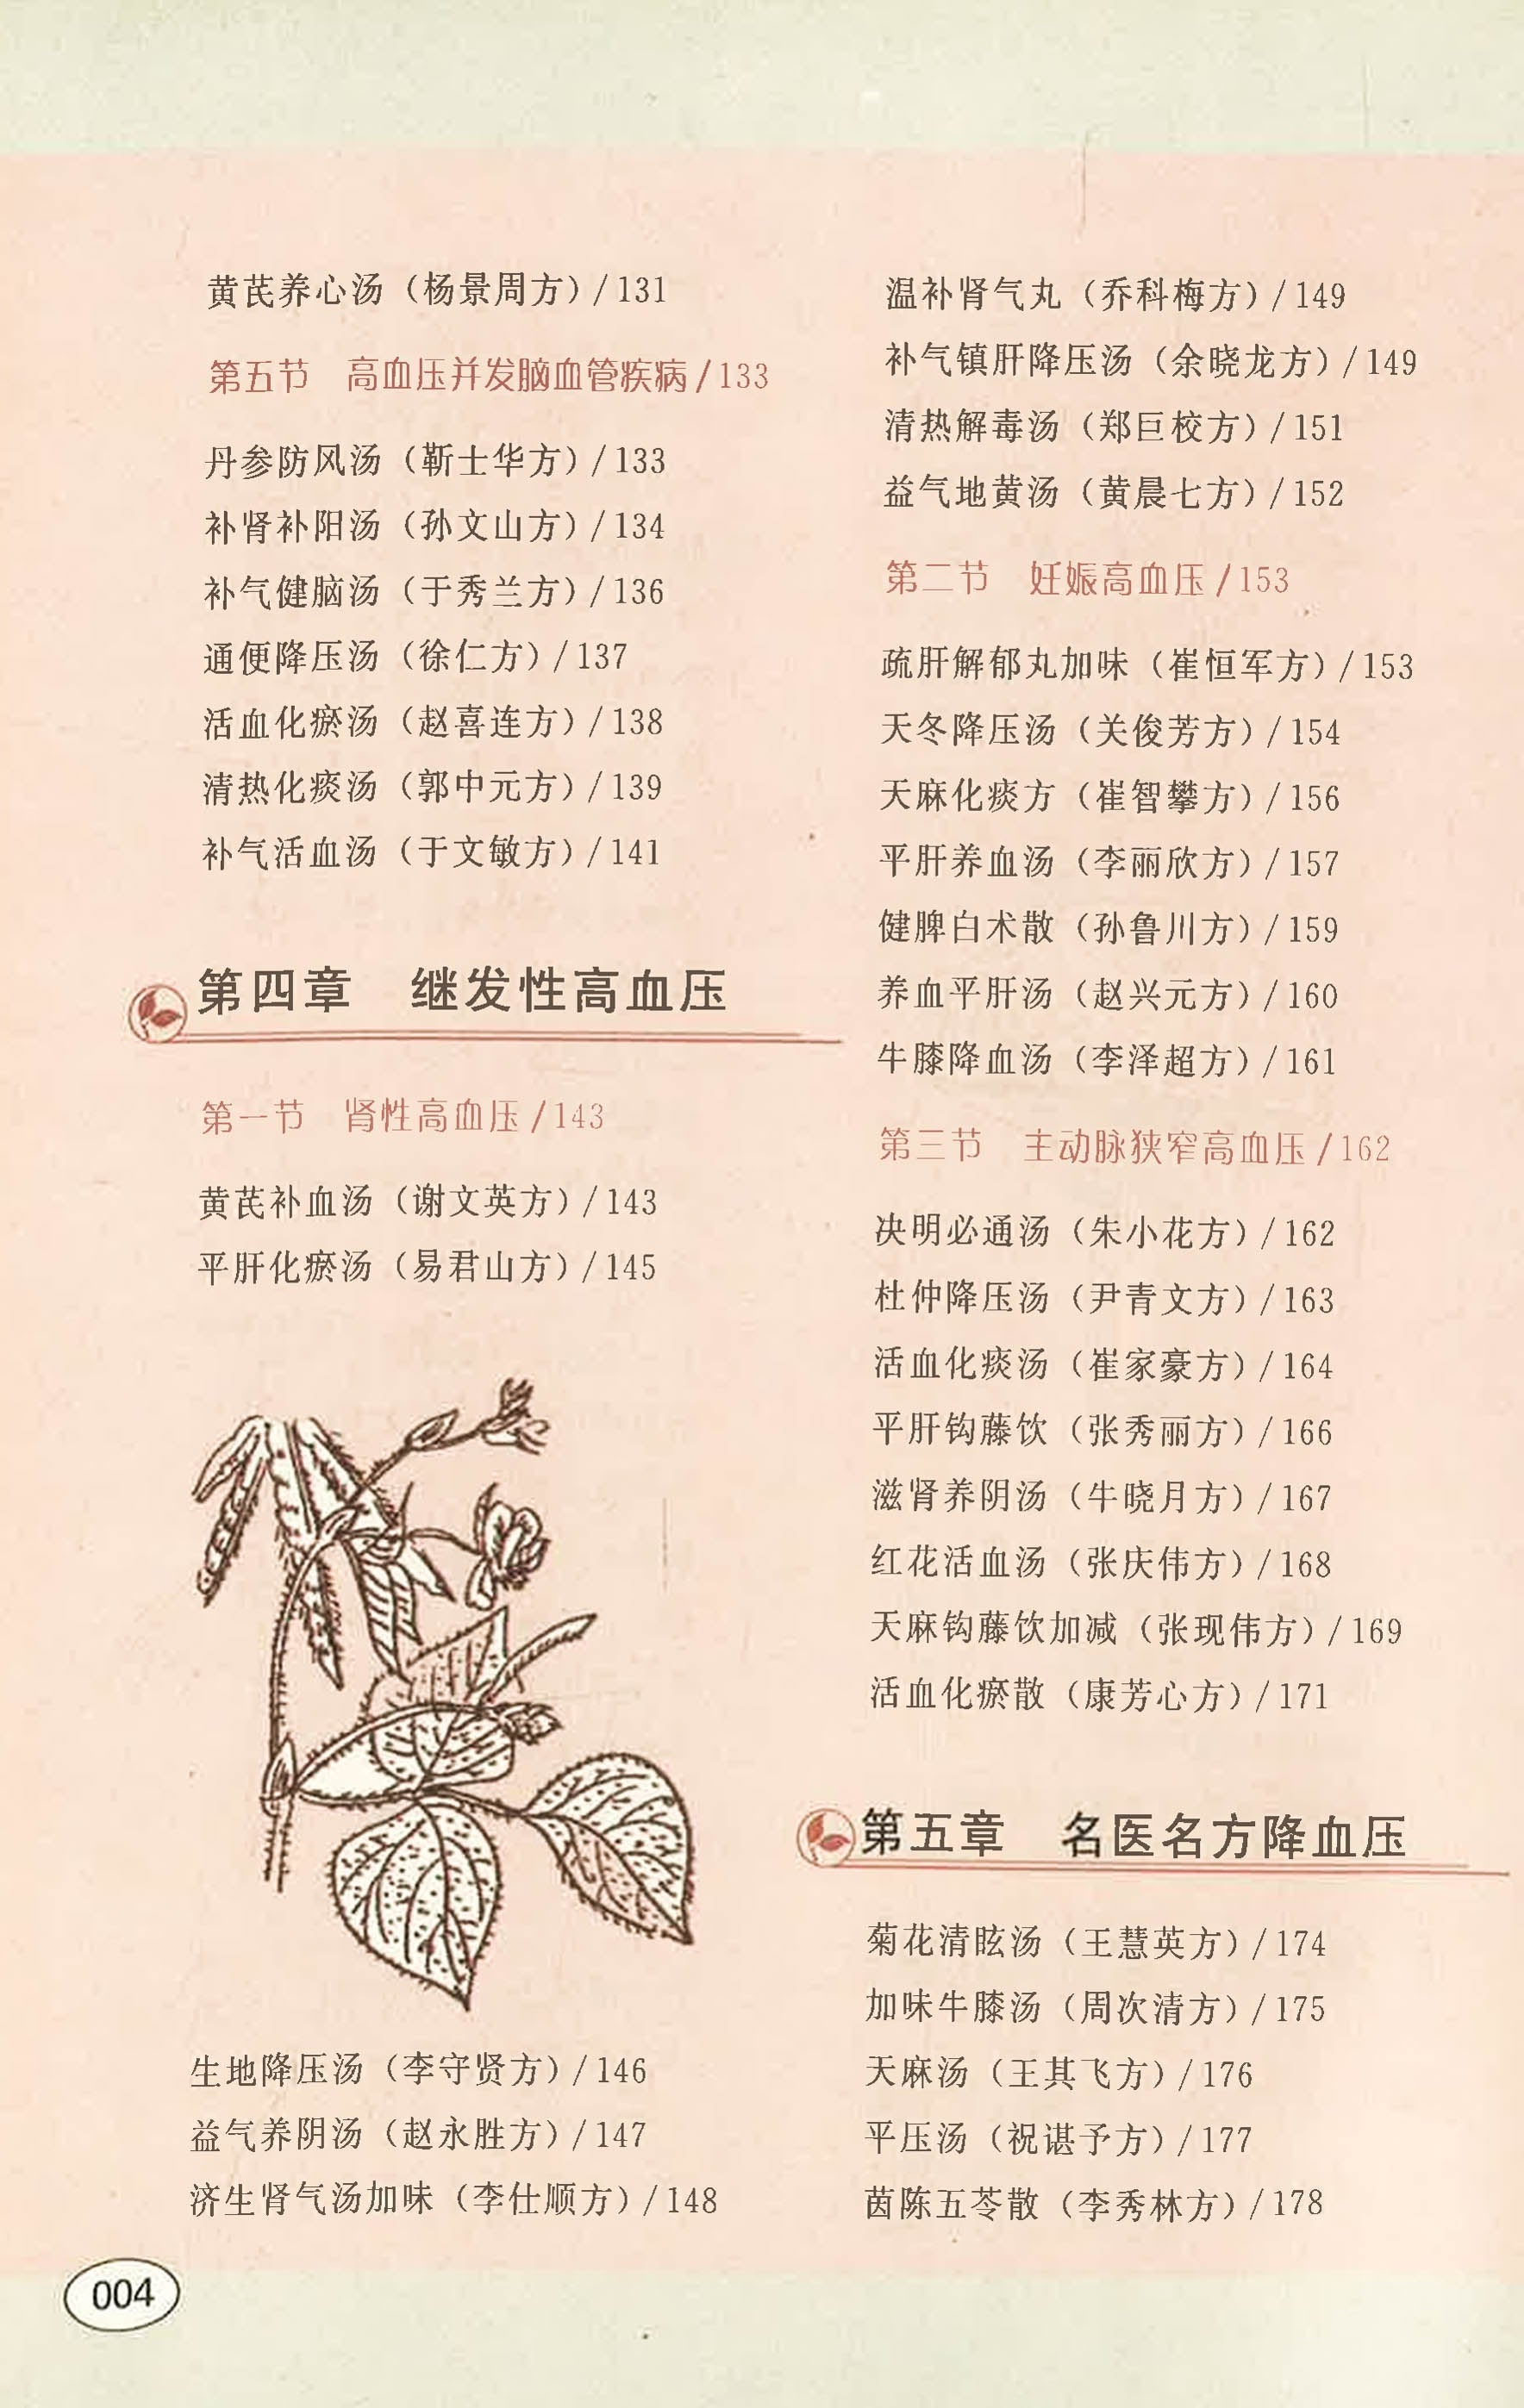 黄芪养心汤（杨景周方）/131
第五节 高血压并发脑血管疾病/133
丹参防风汤（靳士华方）/133
补肾补阳汤（孙文山方）/134
补气健脑汤（于秀兰方）/136
通便降压汤（徐仁方）/137
活血化瘀汤（赵喜连方）/138
清热化痰汤（郭中元方）/139
补气活血汤（于文敏方）/141
第四章 继发性高血压
第一节 肾性高血压/143
黄芪补血汤（谢文英方）/143
平肝化瘀汤（易君山方）/145
生地降压汤（李守贤方）/146
益气养阴汤（赵永胜方）/147
济生肾气汤加味（李仕顺方）/148
温补肾气丸（乔科梅方）/149
补气镇肝降压汤（余晓龙方）/149
清热解毒汤（郑巨校方）/151
益气地黄汤（黄晨七方）/152
第二节 妊娠高血压/153
疏肝解郁丸加味（崔恒军方）/153
天冬降压汤（关俊芳方）/154
天麻化痰方（崔智攀方）/156
平肝养血汤（李丽欣方）/157
健脾白术散（孙鲁川方）/159
养血平肝汤（赵兴元方）/160
牛膝降血汤（李泽超方）/161
第三节 主动脉狭窄高血压/162
决明必通汤（朱小花方）/162
杜仲降压汤（尹青文方）/163
活血化痰汤（崔家豪方）/164
平肝钩藤饮（张秀丽方）/166
滋肾养阴汤（牛晓月方）/167
红花活血汤（张庆伟方）/168
天麻钩藤饮加减（张现伟方）/169
活血化瘀散（康芳心方）/171
第五章 名医名方降血压
菊花清眩汤（王慧英方）/174
加味牛膝汤（周次清方）/175
天麻汤（王其飞方）/176
平压汤（祝谌予方）/177
茵陈五苓散（李秀林方）/178
004